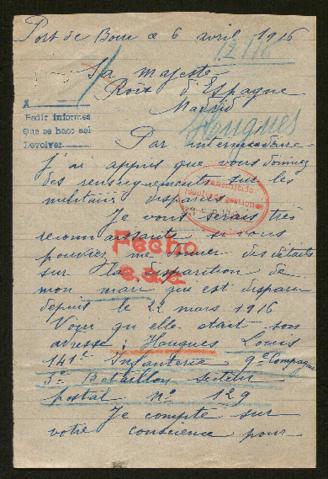 Port de Bouc le 6 avril 1916
12116
Sa majesté
Roi d'Espagne
Madrid
A
Pedir informes
Que se haga así
Devolver
Hougues
Par intermédiaire
j'ai appris que vous donniez
des renseignements sur les
militaires disparus
Je vous serais très
reconnaissante si vous
pouviez me donner des détails
sur la disparition de
mon mari qui est disparu
depuis le 22 mars 1916
Fecho
Voici qu'elle était son
adresse : Hougues Louis
141e Infanterie 9e Compagnie
3e Bataillon secteur
postal no 129
Je compte sur
votre conscience pour